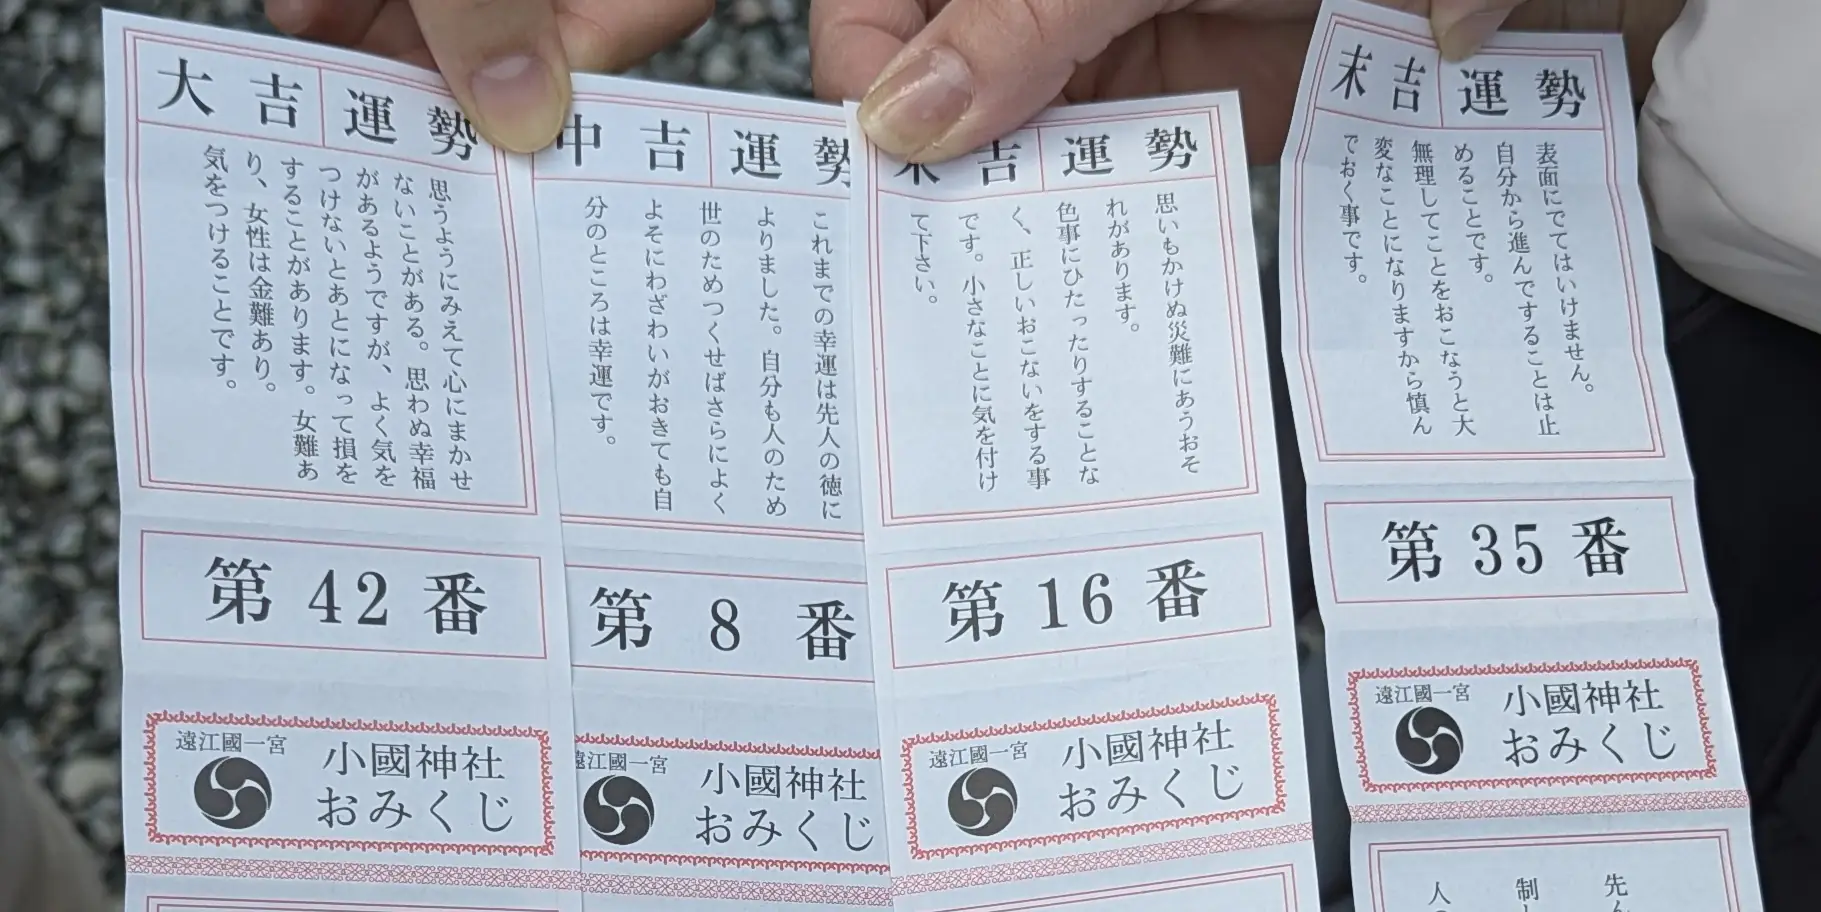 大吉 運勢
思うようにみえて心にまかせ
ないことがある。思わぬ幸福
があるようですが、よく気を
つけないとあとになって損を
することがあります。女難あ
り、女性は金難あり。
気をつけることです。
第42番
遠江國一宮
小國神社
おみくじ
中吉 運勢
これまでの幸運は先人の徳に
よりました。自分も人のため
世のためつくせばさらによく
よそにわざわいがおきても自
分のところは幸運です。
第8番
遠江國一宮
小國神社
おみくじ
末吉 運勢
思いもかけぬ災難にあうおそ
れがあります。
色事にひたったりすることな
く、正しいおこないをする事
です。小さなことに気を付け
て下さい。
第16番
遠江國一宮
小國神社
おみくじ
末吉 運勢
表面にでてはいけません。
自分から進んですることは止
めることです。
無理してことをおこなうと大
変なことになりますから慎ん
でおく事です。
第35番
遠江國一宮
小國神社
おみくじ
先
制
人